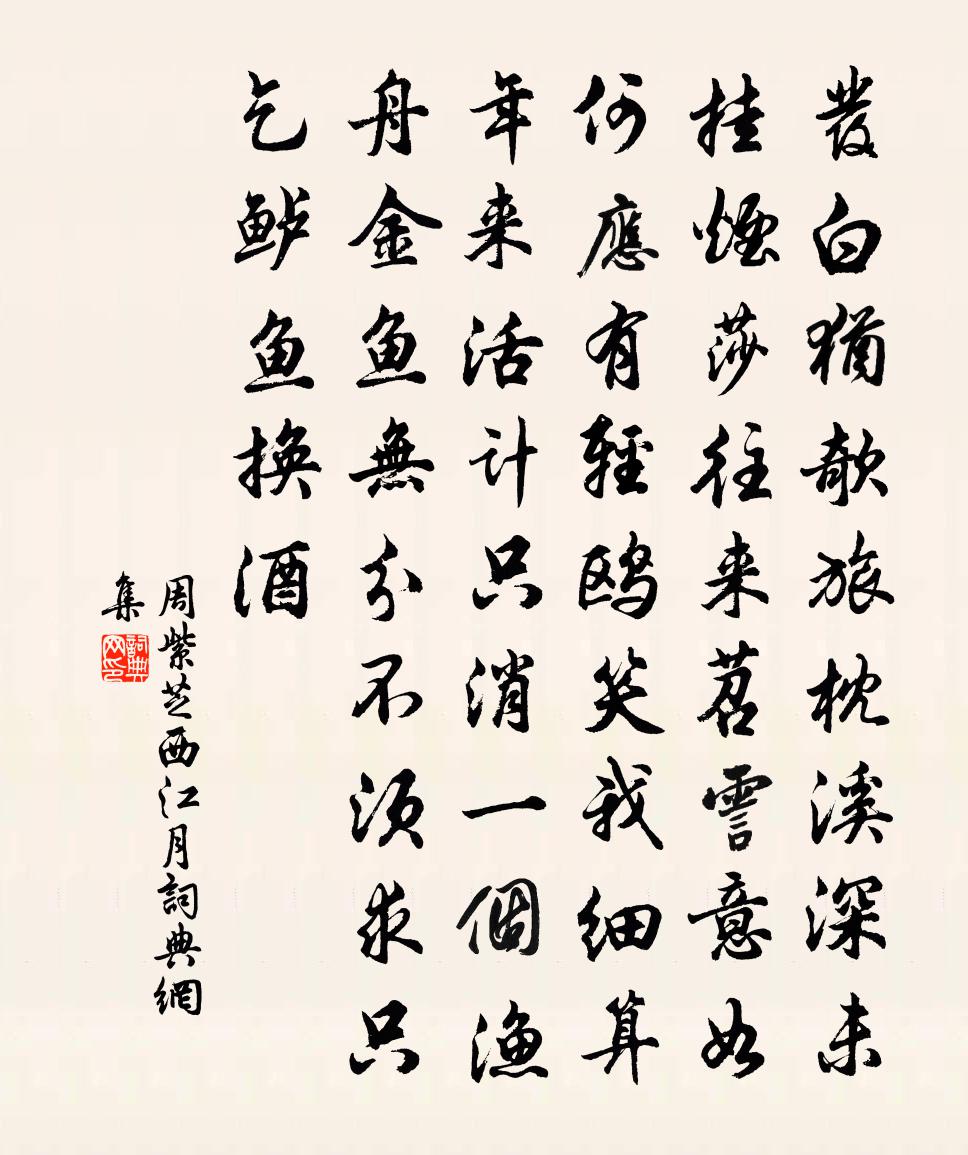 發白猶欹旅枕溪深未
挂煙莎往来苕霅意如
何應有輕鷗笑我細算
年来活計只消一個漁
舟金鱼無分不須求只
乞鲈鱼換酒
周紫芝西江月詞典網
集
詞典网印